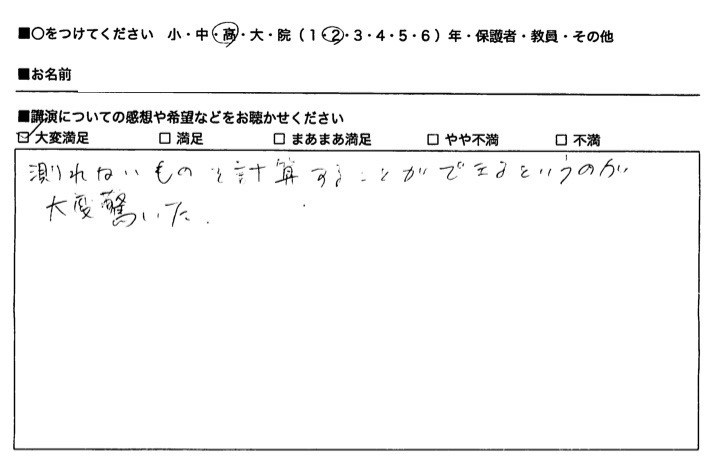 ■○をつけてください 小・中・高・大・院（1・2・3・4・5・6）年・保護者・教員・その他
■お名前
■講演についての感想や希望などをお聴かせください
☑ 大変満足 □ 満足 □ まあまあ満足 □ やや不満 □ 不満
測れないものを計算することができるというのが
大変驚いた.